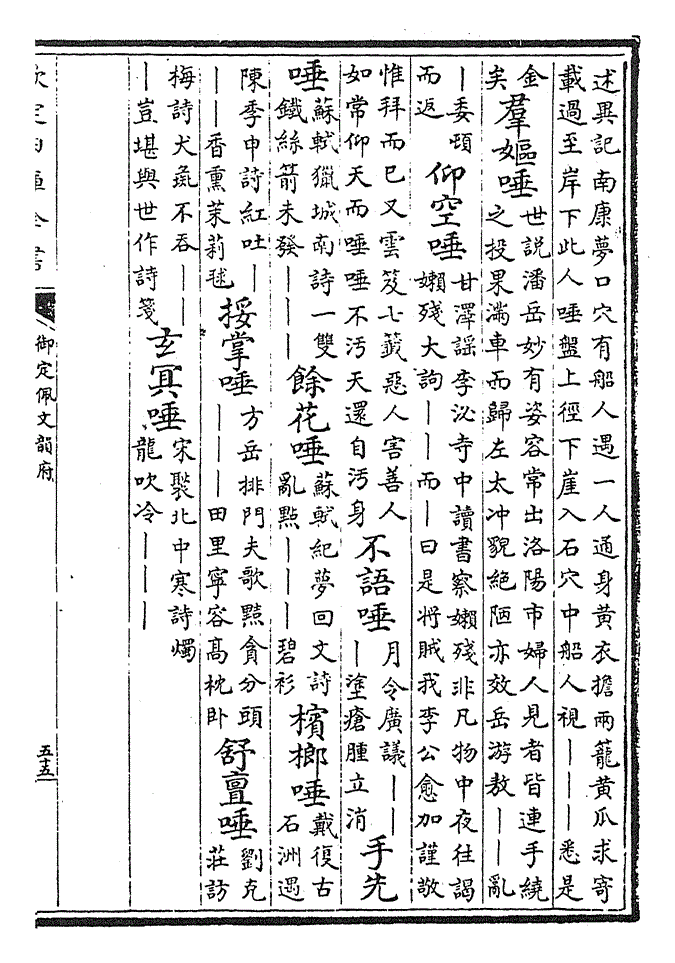 述異記南康夢口穴有船人遇一人通身黄衣擔兩籠黄瓜求寄
載過至岸下此人唾盤上徑下崖入石穴中船人視｜｜｜悉是
金
矣
羣嫗唾
世説潘岳妙有姿容常出洛陽市婦人見者皆連手繞
之投果滿車而歸左太冲貌絶陋亦效岳游敖｜｜亂
｜委頓
而返
仰空唾
甘澤謡李泌寺中讀書察嬾殘非凡物中夜往謁
嬾殘大訽｜｜而｜曰是將賊我李公愈加謹敬
惟拜而已又雲笈七籤惡人害善人
如常仰天而唾唾不汚天還自汚身
不語唾
月令廣議｜｜
｜塗瘡腫立消
手先
唾
蘇軾獵城南詩一雙
鐵絲箭未發｜｜｜
餘花唾
蘇軾紀夢回文詩
亂點｜｜｜碧衫
檳榔唾
戴復古
石洲遇
陳季申詩紅吐｜
｜｜香熏茉莉毬
挼掌唾
方岳排門夫歌黠貪分頭
｜｜｜田里寧容高枕卧
舒亶唾
劉克
莊訪
梅詩犬彘不吞｜｜
｜豈堪與世作詩箋
玄冥唾
宋褧北中寒詩燭
龍吹冷｜｜｜
欽定四庫全書
御定佩文韻府
五十五